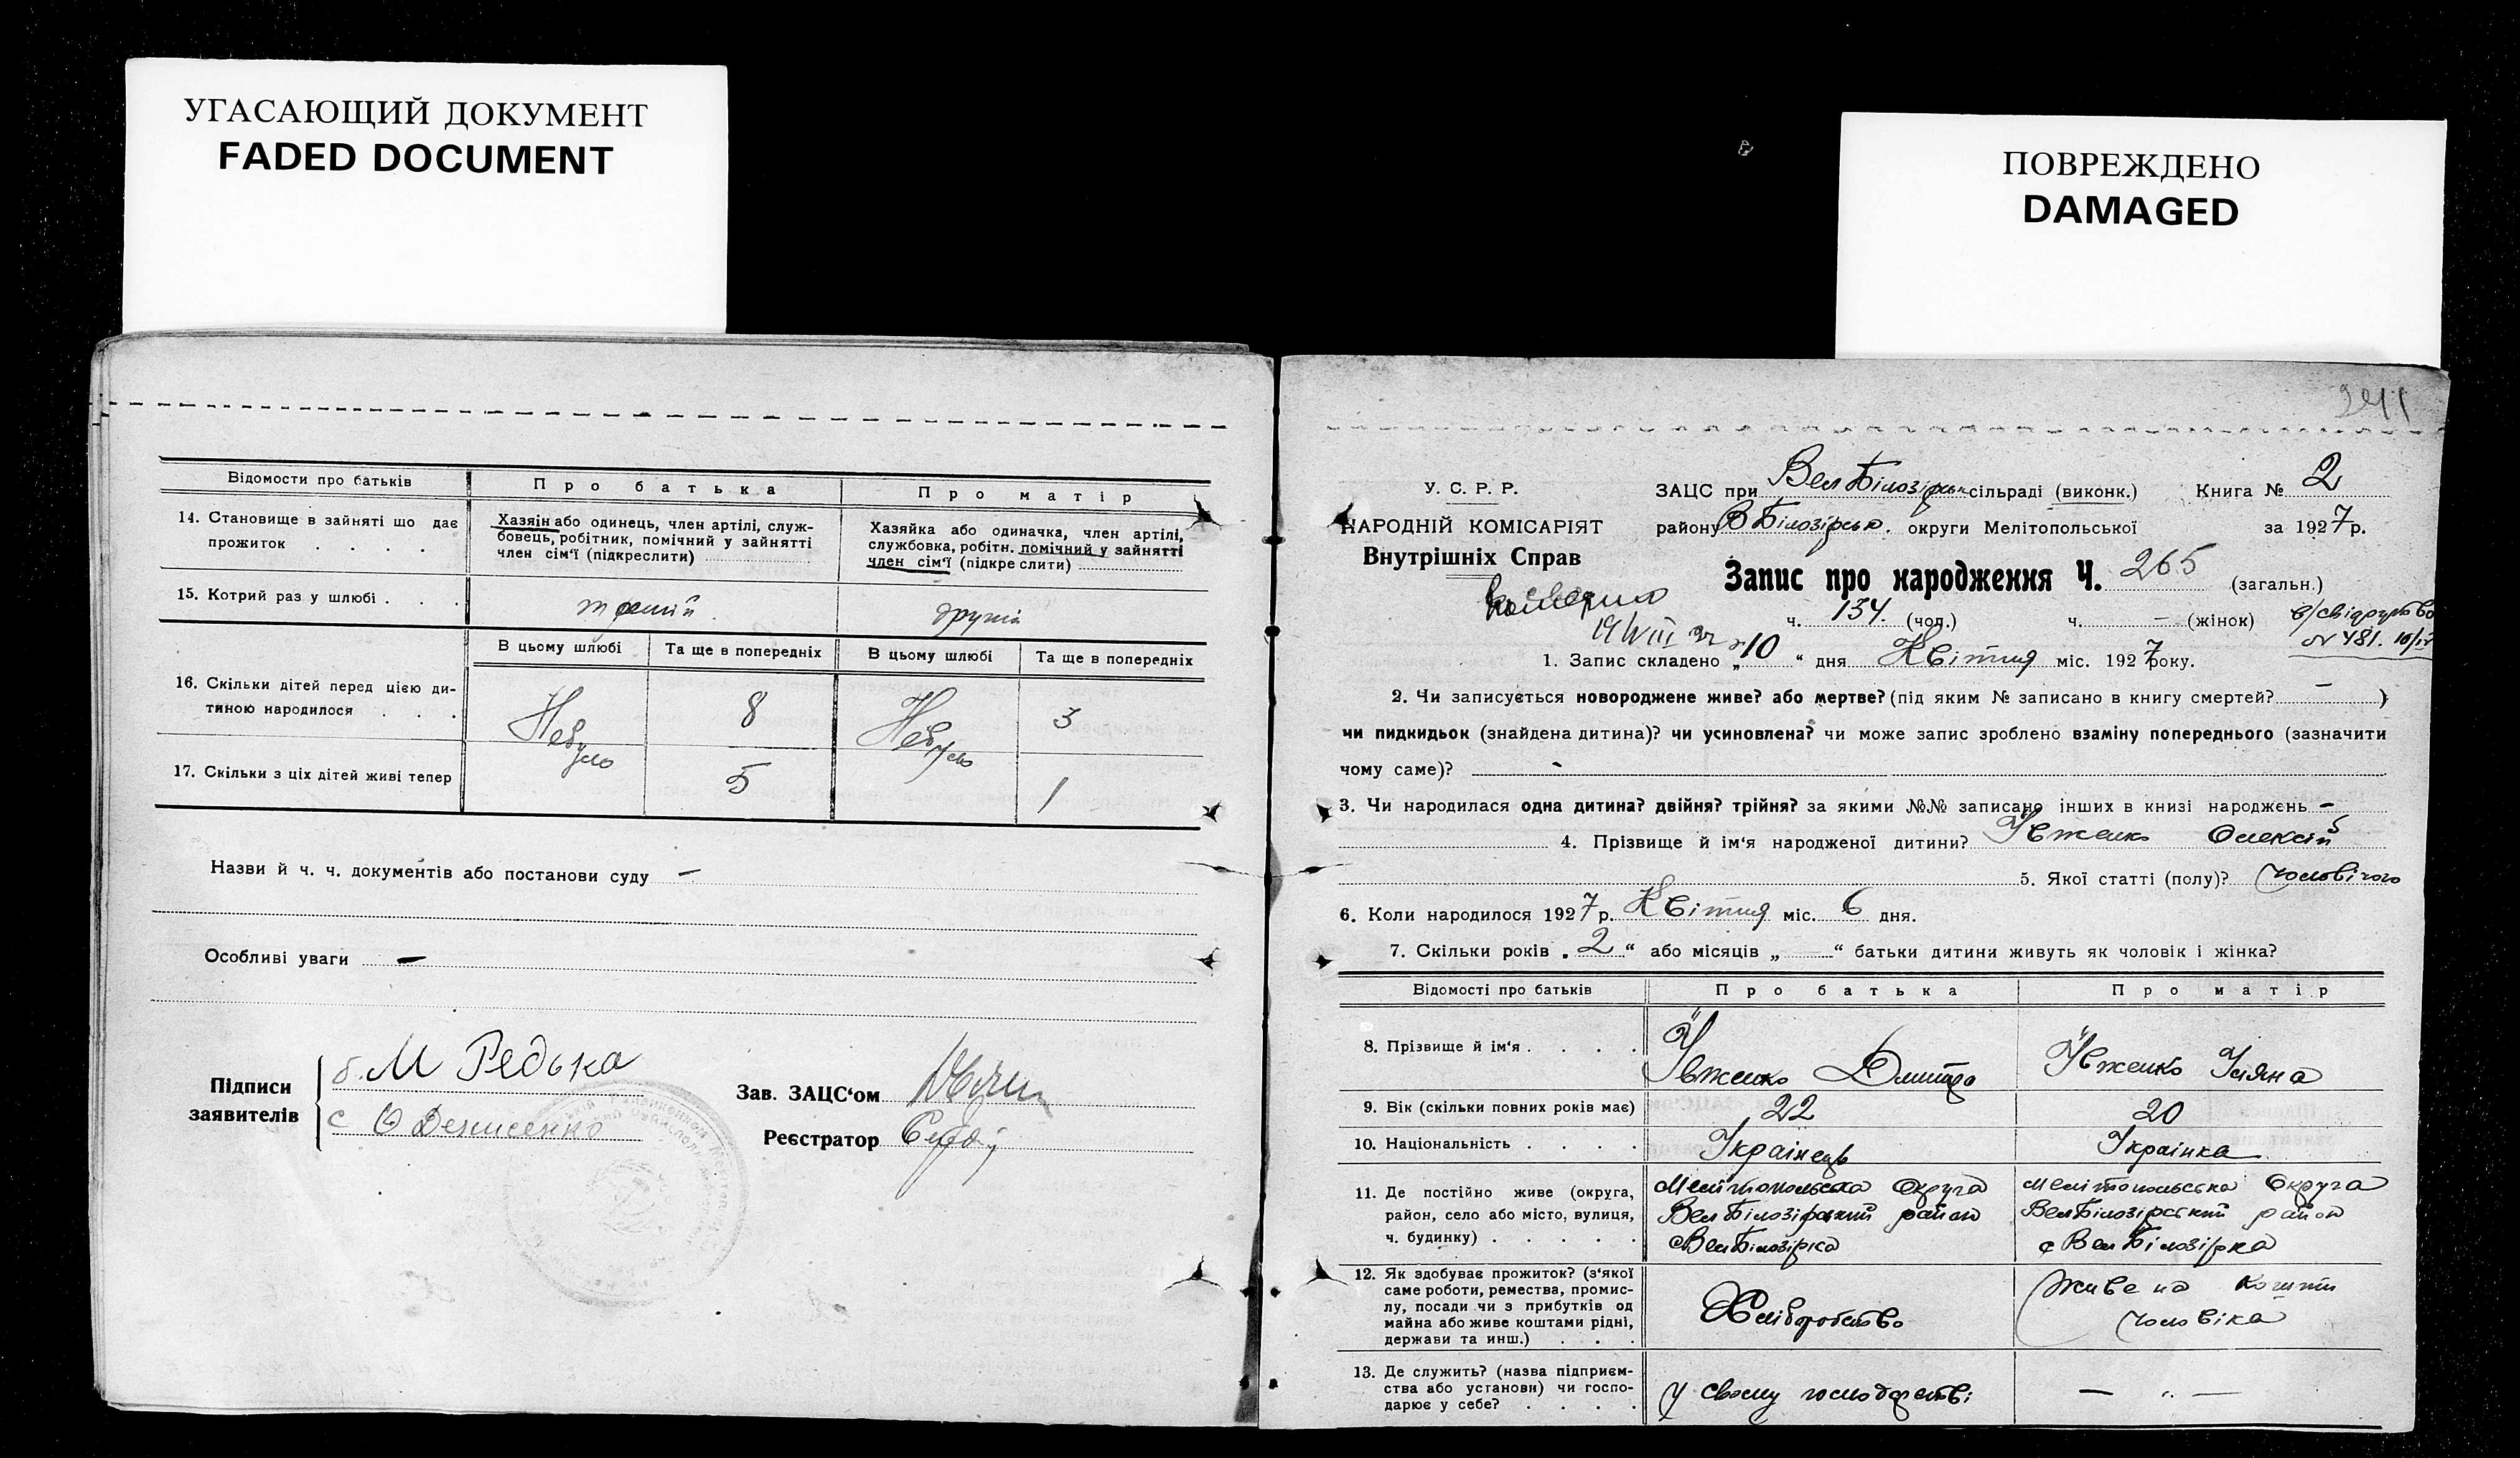 УГАСАЮЩИЙ ДОКУМЕНТ
FADED DOCUMENT
ПОВРЕЖДЕНО
DAMAGED
Відомости про батьків
Про батька
Про матір
14. Становище в зайняті що дає прожиток . . . .
Хазяін або одинець, член артілі, служ-
бовець, робітник, помічний у зайнятті
член сім'ї (підкреслити)
Хазяйка або одиначка, член артілі,
службовка, робітн. помічний у зайнятті
член сім'ї (підкреслити)
15. Котрий раз у шлюбі . . .
третій
другий
В цьому шлюбі
Та ще в попередніх
В цьому шлюбі
Та ще в попередніх
16. Скільки дітей перед цією ди-
тиною народилося . . .
Небуло
8
Небуло
3
17. Скільки з ціх дітей живі тепер
5
1
Назви й ч. ч. документів або постанови суду —
Особливі уваги —
Підписи
заявителів
б. М Редька
с О Денисенко
Зав. ЗАЦС'ом
Реєстратор
241
У. С. Р. Р.
НАРОДНІЙ КОМІСАРІЯТ
Внутрішніх Справ
ЗАЦС при Вел Білозірськ сільраді (виконк.) Книга № 2
району В Білозірськ. округи Мелітопольської за 1927 р.
Запис про народження Ч. 265 (загальн.)
ч. 134. (чол.) ч. — (жінок)
в/свідоцтво
N 481. 10/IV
1. Запис складено „10“ дня Квітня міс. 1927 року.
2. Чи записується новороджене живе? або мертве? (під яким № записано в книгу смертей? — )
чи пидкидьок (знайдена дитина)? чи усиновлена? чи може запис зроблено взаміну попереднього (зазначити
чому саме)? -
3. Чи народилася одна дитина? двійня? трійня? за якими №№ записано інших в книзі народжень —
4. Прізвище й ім'я народженої дитини? Ївженко Олексій
5. Якої статті (полу)? Чоловічого
6. Коли народилося 1927 р. Квітня міс. 6 дня.
7. Скільки років „2“ або місяців „—“ батьки дитини живуть як чоловік і жінка?
Відомості про батьків
Про батька
Про матір
8. Прізвище й ім'я . . . .
Ївженко Дмитро
Ївженко Уляна
9. Вік (скільки повних років має)
22
20
10. Національність . . . .
Українець
Українка
11. Де постійно живе (округа,
район, село або місто, вулиця,
ч. будинку) . . . . .
Мелітопольська Округа
Вел Білозірський район
с Вел Білозірка
Мелітопольська Округа
Вел Білозірський район
с Вел Білозірка
12. Як здобуває прожиток? (з'якої
саме роботи, ремества, промис-
лу, посади чи з прибутків од
майна або живе коштами рідні,
держави та инш.) . . .
Хліборобство
Живе на кошти
Чоловіка
13. Де служить? (назва підприєм-
ства або установи) чи госпо-
дарює у себе? . . . .
У своєму господарстві
— „ —